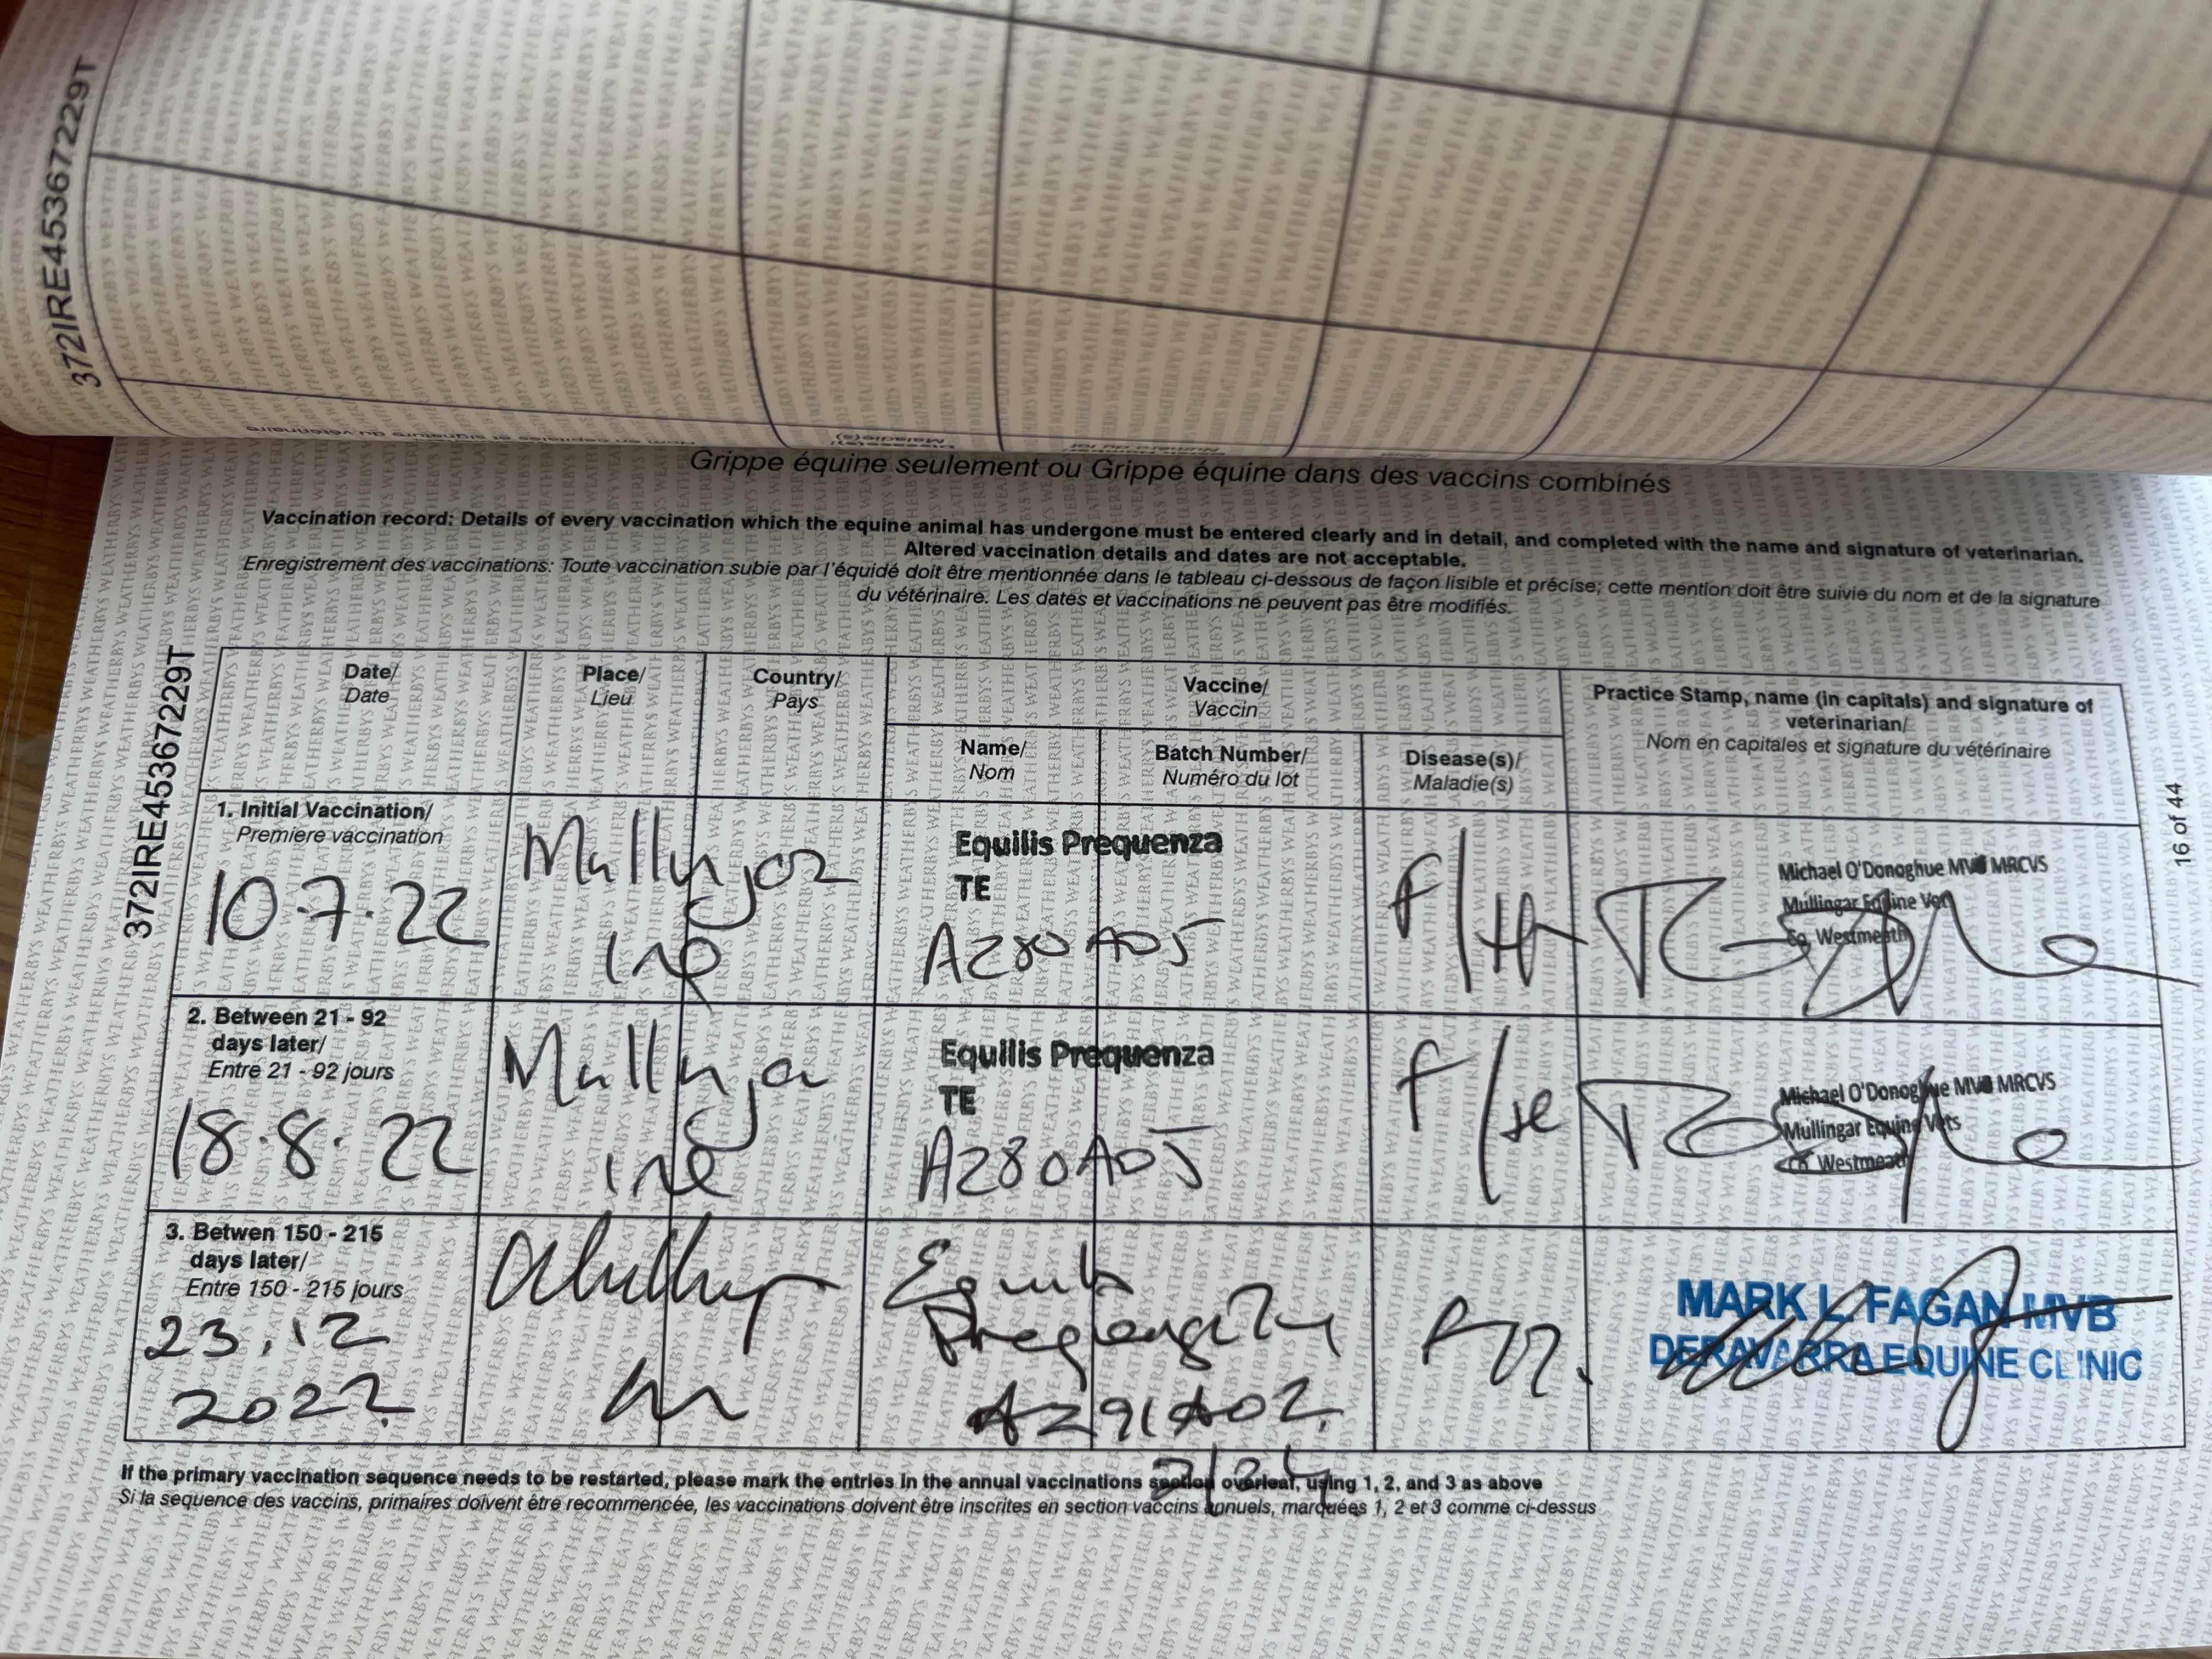 372IRE45367229T
Grippe équine seulement ou Grippe équine dans des vaccins combinés
Vaccination record: Details of every vaccination which the equine animal has undergone must be entered clearly and in detail, and completed with the name and signature of veterinarian.
Altered vaccination details and dates are not acceptable.
Enregistrement des vaccinations: Toute vaccination subie par l'équidé doit être mentionnée dans le tableau ci-dessous de façon lisible et précise; cette mention doit être suivie du nom et de la signature
du vétérinaire. Les dates et vaccinations ne peuvent pas être modifiés.
372IRE45367229T
16 of 44
Date/ Place/ Country/ Vaccine/ Practice Stamp, name (in capitals) and signature of
Date Lieu Pays Vaccin veterinarian/
Nom en capitales et signature du vétérinaire
Name/ Batch Number/ Disease(s)/
Nom Numéro du lot Maladie(s)
1. Initial Vaccination/
Premiere vaccination
10.7.22
Mullingar
IRE
Equilis Prequenza
TE
A280A05
Michael O'Donoghue MVB MRCVS
Mullingar Equine Vets
Co Westmeath
2. Between 21 - 92
days later/
Entre 21 - 92 jours
18.8.22
Mullingar
IRE
Equilis Prequenza
TE
A280A05
Michael O'Donoghue MVB MRCVS
Mullingar Equine Vets
Co Westmeath
3. Betwen 150 - 215
days later/
Entre 150 - 215 jours
23.12
2022
Equilis
Prequenza
A291A02
MARK L FAGAN MVB
DERAVARRA EQUINE CLINIC
If the primary vaccination sequence needs to be restarted, please mark the entries in the annual vaccinations section overleaf, using 1, 2, and 3 as above
Si la sequence des vaccins, primaires doivent être recommencée, les vaccinations doivent être inscrites en section vaccins annuels, marquées 1, 2 et 3 comme ci-dessus